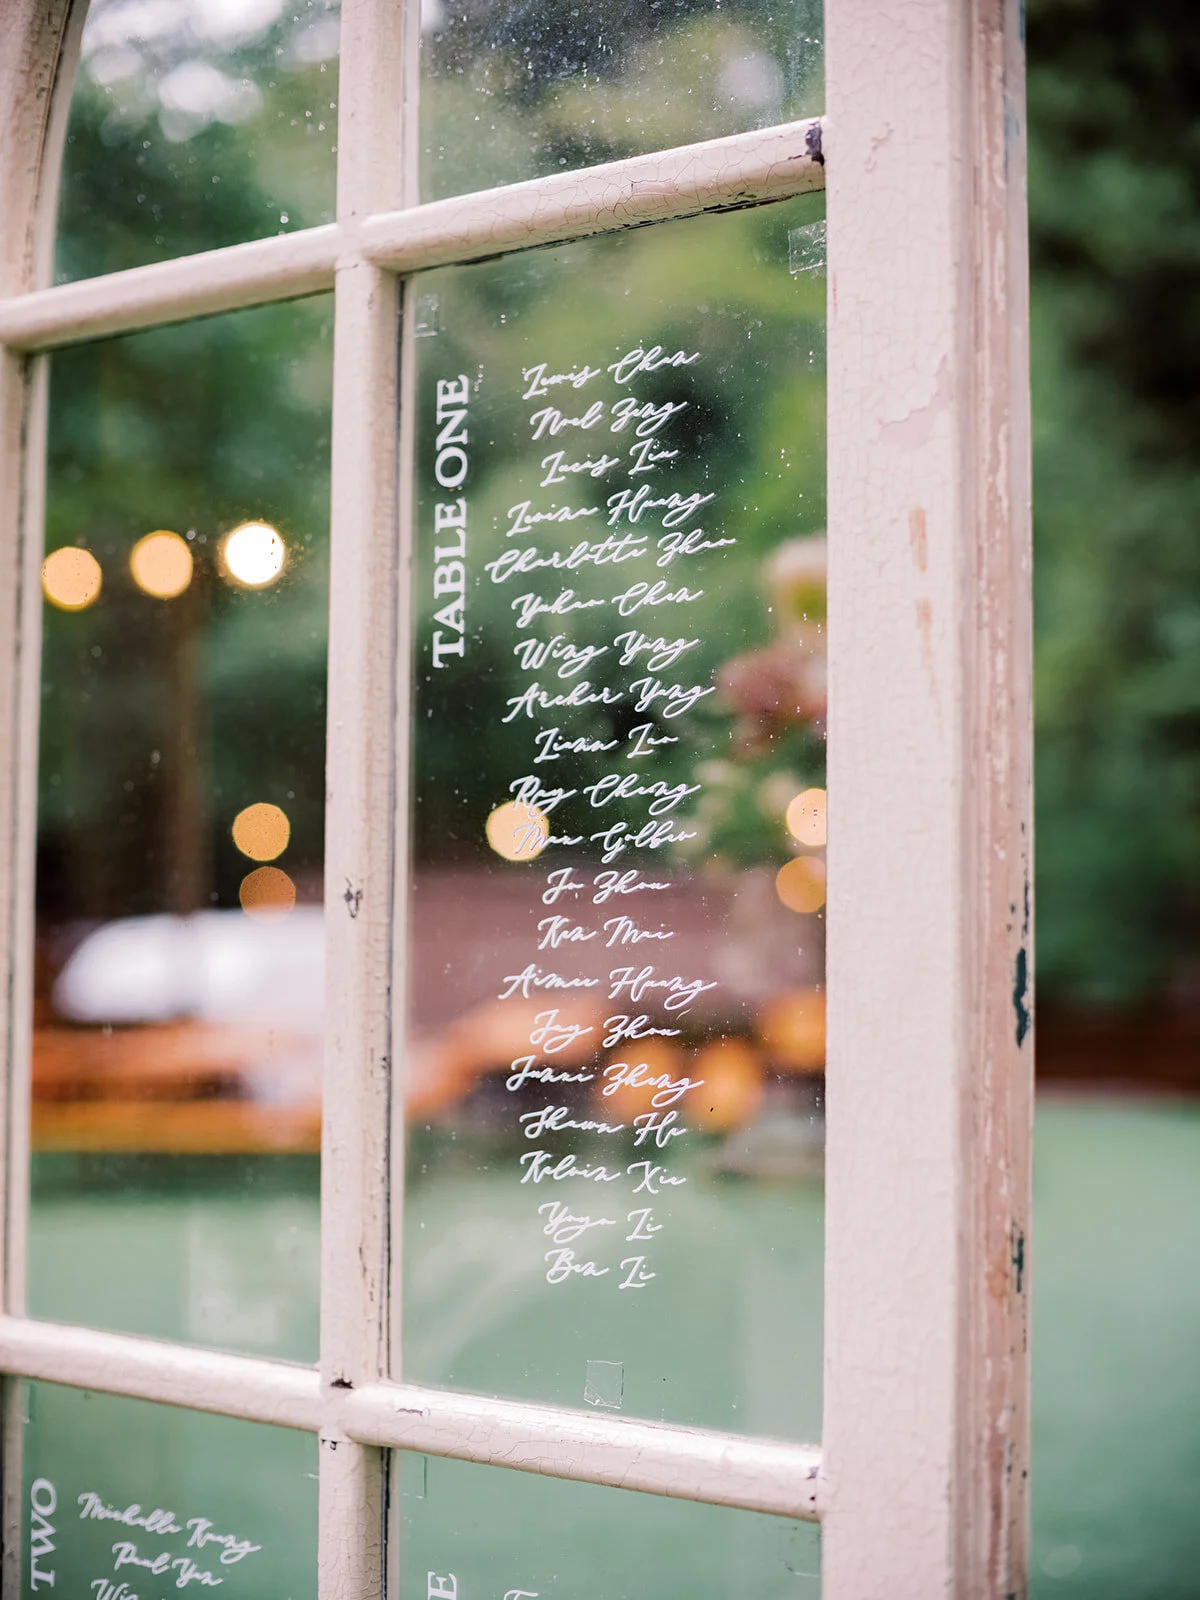 TABLE ONE
Lewis Chan
Noel Zeng
Lucas Liu
Levina Huang
Charlotte Zhao
Yuhao Chen
Wing Yung
Archer Yang
Liann Lao
Ray Cheng
Max Golbev
Jo Zhou
Ken Mai
Aimee Huang
Jay Zhou
Junni Zheng
Shawn He
Kelvin Xie
Yaya Li
Ben Li
TWO
Michelle Kuang
Paul Yan